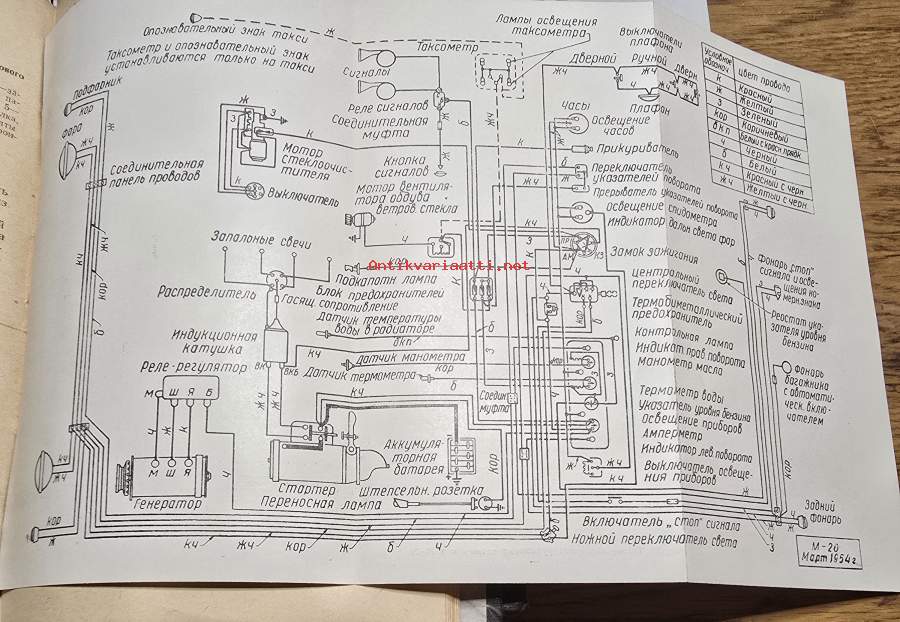 Опознавательный знак такси
Ж
Таксометр и опознавательный знак
устанавливаются только на такси
Таксометр
Лампы освещения
таксометра
Сигналы
Реле сигналов
Соединительная
муфта
Кнопка
сигналов
Мотор вентиля-
тора обдува
ветров. стекла
Подфарник
кор
Фара
кч
жч
Соединительная
панель проводов
Мотор
стеклоочис-
тителя
Выключатель
Запальные свечи
Распределитель
Индукционная
катушка
Реле-регулятор
М Ш Я Б
М Ш Я
Генератор
Подкапотн. лампа
Блок предохранителей
Гасящ. сопротивление
Датчик температуры
воды в радиаторе
вкп
Датчик манометра
Датчик термометра
ВК ВКБ
Стартер
Переносная лампа
Аккумуля-
торная
батарея
Штепсельн. розетка
Соедин.
муфта
Дверной
Ручной
Дверн
Выключатели
плафона
Плафон
Часы
Освещение
часов
Прикуриватель
Переключатель
указателей поворота
Прерыватель указателей поворота
Освещение спидометра
Индикатор дальн света фар
Замок зажигания
ПР
АМ
КЗ
Центральный
переключатель света
Термобиметаллический
предохранитель
Контрольная лампа
Индикат прав поворота
Манометр масла
Термометр воды
Указатель уровня бензина
Освещение приборов
Амперметр
Индикатор лев поворота
Выключатель освеще-
ния приборов
Включатель „стоп" сигнала
Ножной переключатель света
Условное
обознач
цвет провода
К Красный
Ж Желтый
З Зеленый
кор Коричневый
вкп Белый с красн прядк
Ч Черный
Б Белый
КЧ Красный с черн
ЖЧ Желтый с черн
Фонарь „стоп"
сигнала и осве-
щения но-
мерн знака
Реостат ука-
зателя уровня
бензина
Фонарь
багажника
с автомати-
ческ. вклю-
чателем
Задний
фонарь
М-20
Март 1954 г.
кч жч кор ж б ч
Antikvariaatti.net